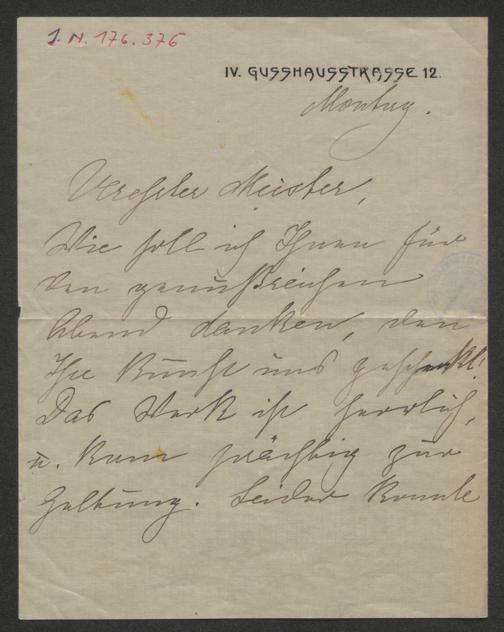 I. N. 176.376
IV. GUSSHAUSSTRASSE 12.
Montag.
Verehrter Meister,
Wie soll ich Ihnen für
den genußreichen
Abend danken, den
Ihre Kunst uns geschenkt!
Das Werk ist herrlich,
u. kam prächtig zur
Geltung. Leider konnte